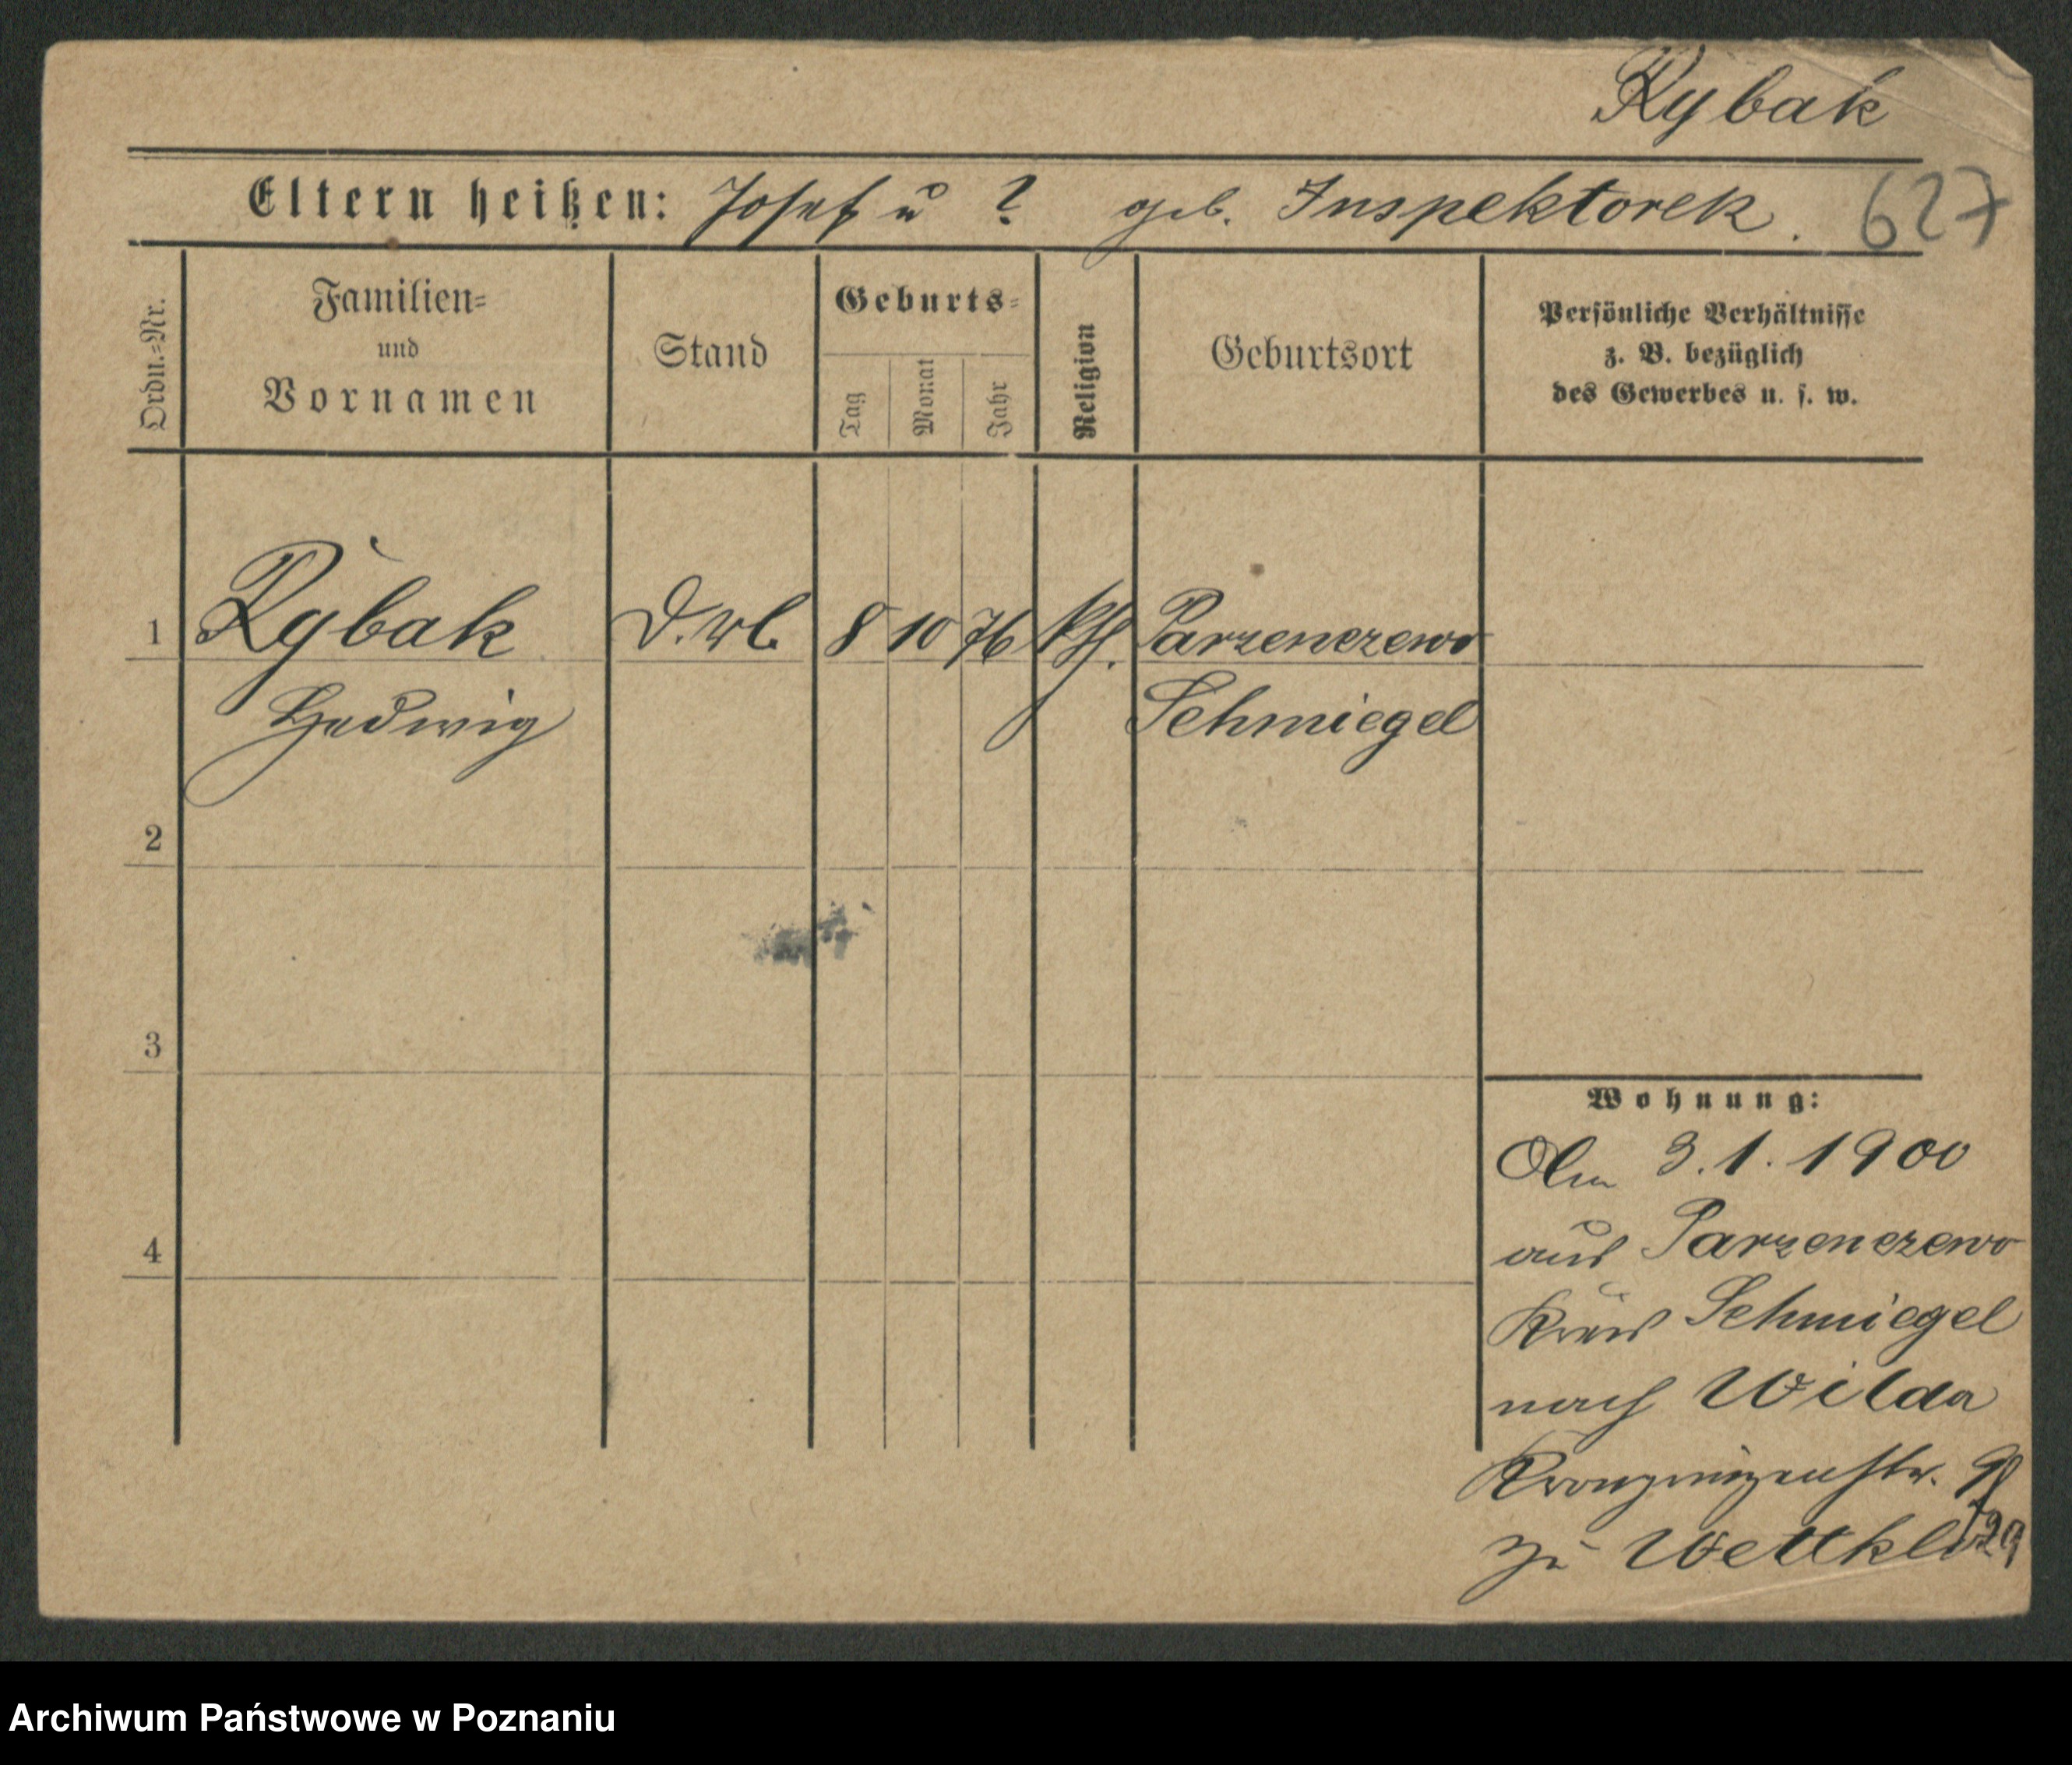 Rybak
Eltern heißen: Josef u ? geb. Inspektorek.
627
Ordn.=Nr.
Familien=
und
Vornamen
Stand
Geburts=
Tag
Monat
Jahr
Religion
Geburtsort
Persönliche Verhältnisse
z. B. bezüglich
des Gewerbes u. s. w.
1 Rybak 8 10 76 kth. Parzenczewo
Hedwig Schmiegel
2
3
4
Wohnung:
Am 3.1.1900
aus Parzenczewo
Kreis Schmiegel
nach Wilda
Kronprinzenstr.
zu
Archiwum Państwowe w Poznaniu